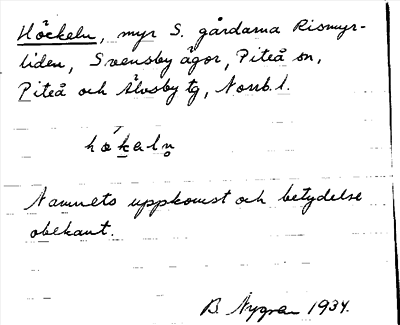 Höckeln, myr S. gårdarna Rismyr-
liden, Svensby ägor, Piteå sn,
Piteå och Älvsby tg, Norrb. l.
hǿk̲aln̥
Namnets uppkomst och betydelse
obekant.
B. Nygren 1934.